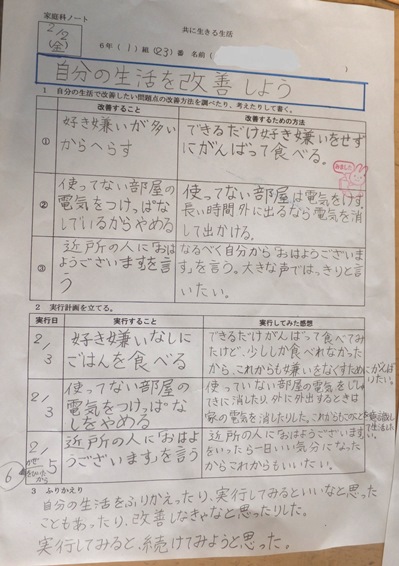 家庭科ノート
共に生きる生活
2/2
(金)
6年(1)組(23)番 名前(
自分の生活を改善しよう
1 自分の生活で改善したい問題点の改善方法を調べたり、考えたりして書く。
改善すること
改善するための方法
①
好き嫌いが多い
からへらす
できるだけ好き嫌いをせず
にがんばって食べる。
みました
②
使ってない部屋の
電気をつけっぱな
しでいるからやめる
使ってない部屋は電気をけす。
長い時間外に出るなら電気を消
して出かける。
③
近所の人に「おは
ようございます」を言
う
なるべく自分から「おはようございま
す」を言う。大きな声ではっきりと言
いたい。
2 実行計画を立てる。
実行日
実行すること
実行してみた感想
2/3
好き嫌いなしに
ごはんを食べる
できるだけがんばって食べてみ
たけど、少ししか食べれなかった
から、これからも嫌いをなくすためにがんば
りたい。
2/3
使ってない部屋の
電気をつけっぱな
しをやめる
使っていない部屋の電気をじし
てきに消したり、外に外出するときは
家の電気を消したりした。これからもこのことを意識し
て生活したい。
2/5
6
かぜ
をひいた
から
近所の人に「おはよ
うございます」を言う
近所の人に「おはようございます」
をいったら一日いい気分になっ
たからこれからもいいたい。
3 ふりかえり
自分の生活をふりかえったり、実行してみるといいなと思った
こともあったり、改善しなきゃなと思ったりした。
実行してみると、続けてみようと思った。